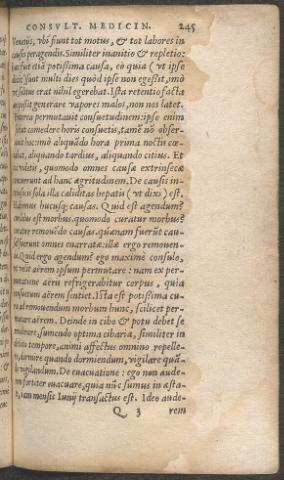 CONSVLT. MEDICIN. 245
Venetijs, vbi fiunt tot motus, & tot labores in
causis peragendis. Similiter inanitio & repletio:
sunt etiã potissima causa, eò quia (vt ipse
dixit) sunt multi dies quòd ipse non egessit, imò
erat nihil egerebat. Ista retentio factæ
generare vapores malos, non nos latet.
permutauit consuetudinem: ipse enim
comedere horis consuetis, tamẽ nõ obser-
hoc: imò aliquãdo hora prima noctis cœ-
aliquando tardius, aliquando citius. Et
videtis, quomodo omnes causæ extrinsecæ
ad hanc ægritudinem. De causis in-
sola illa caliditas hepatis (vt dixi) est.
hucusq; causas. Quid est agendum?
est morbus. quomodo curatur morbus?
remouẽdo causas. quænam fuerũt cau-
fuerunt omnes enarratæ: illæ ergo remouen-
Quid ergo agendum? ego maximè consulo,
velit aërem ipsum permutare: nam ex per-
mutatione aëris refrigerabitur corpus, quia
aërem sentiet. Ista est potissima cu-
ad remouendum morbum hunc, scilicet per-
mutare aërem. Deinde in cibo & potu debet se
moderare, sumendo optima cibaria, similiter in
debito tempore, animi affectus omnino repelle-
re, dormire quando dormiendum, vigilare quã-
do vigilandum. De euacuatione: ego non aude-
rem fortiter euacuare, quia nũc sumus in æsta-
te, nam mensis Iunij transactus est. Ideo aude-
Q 3 rem